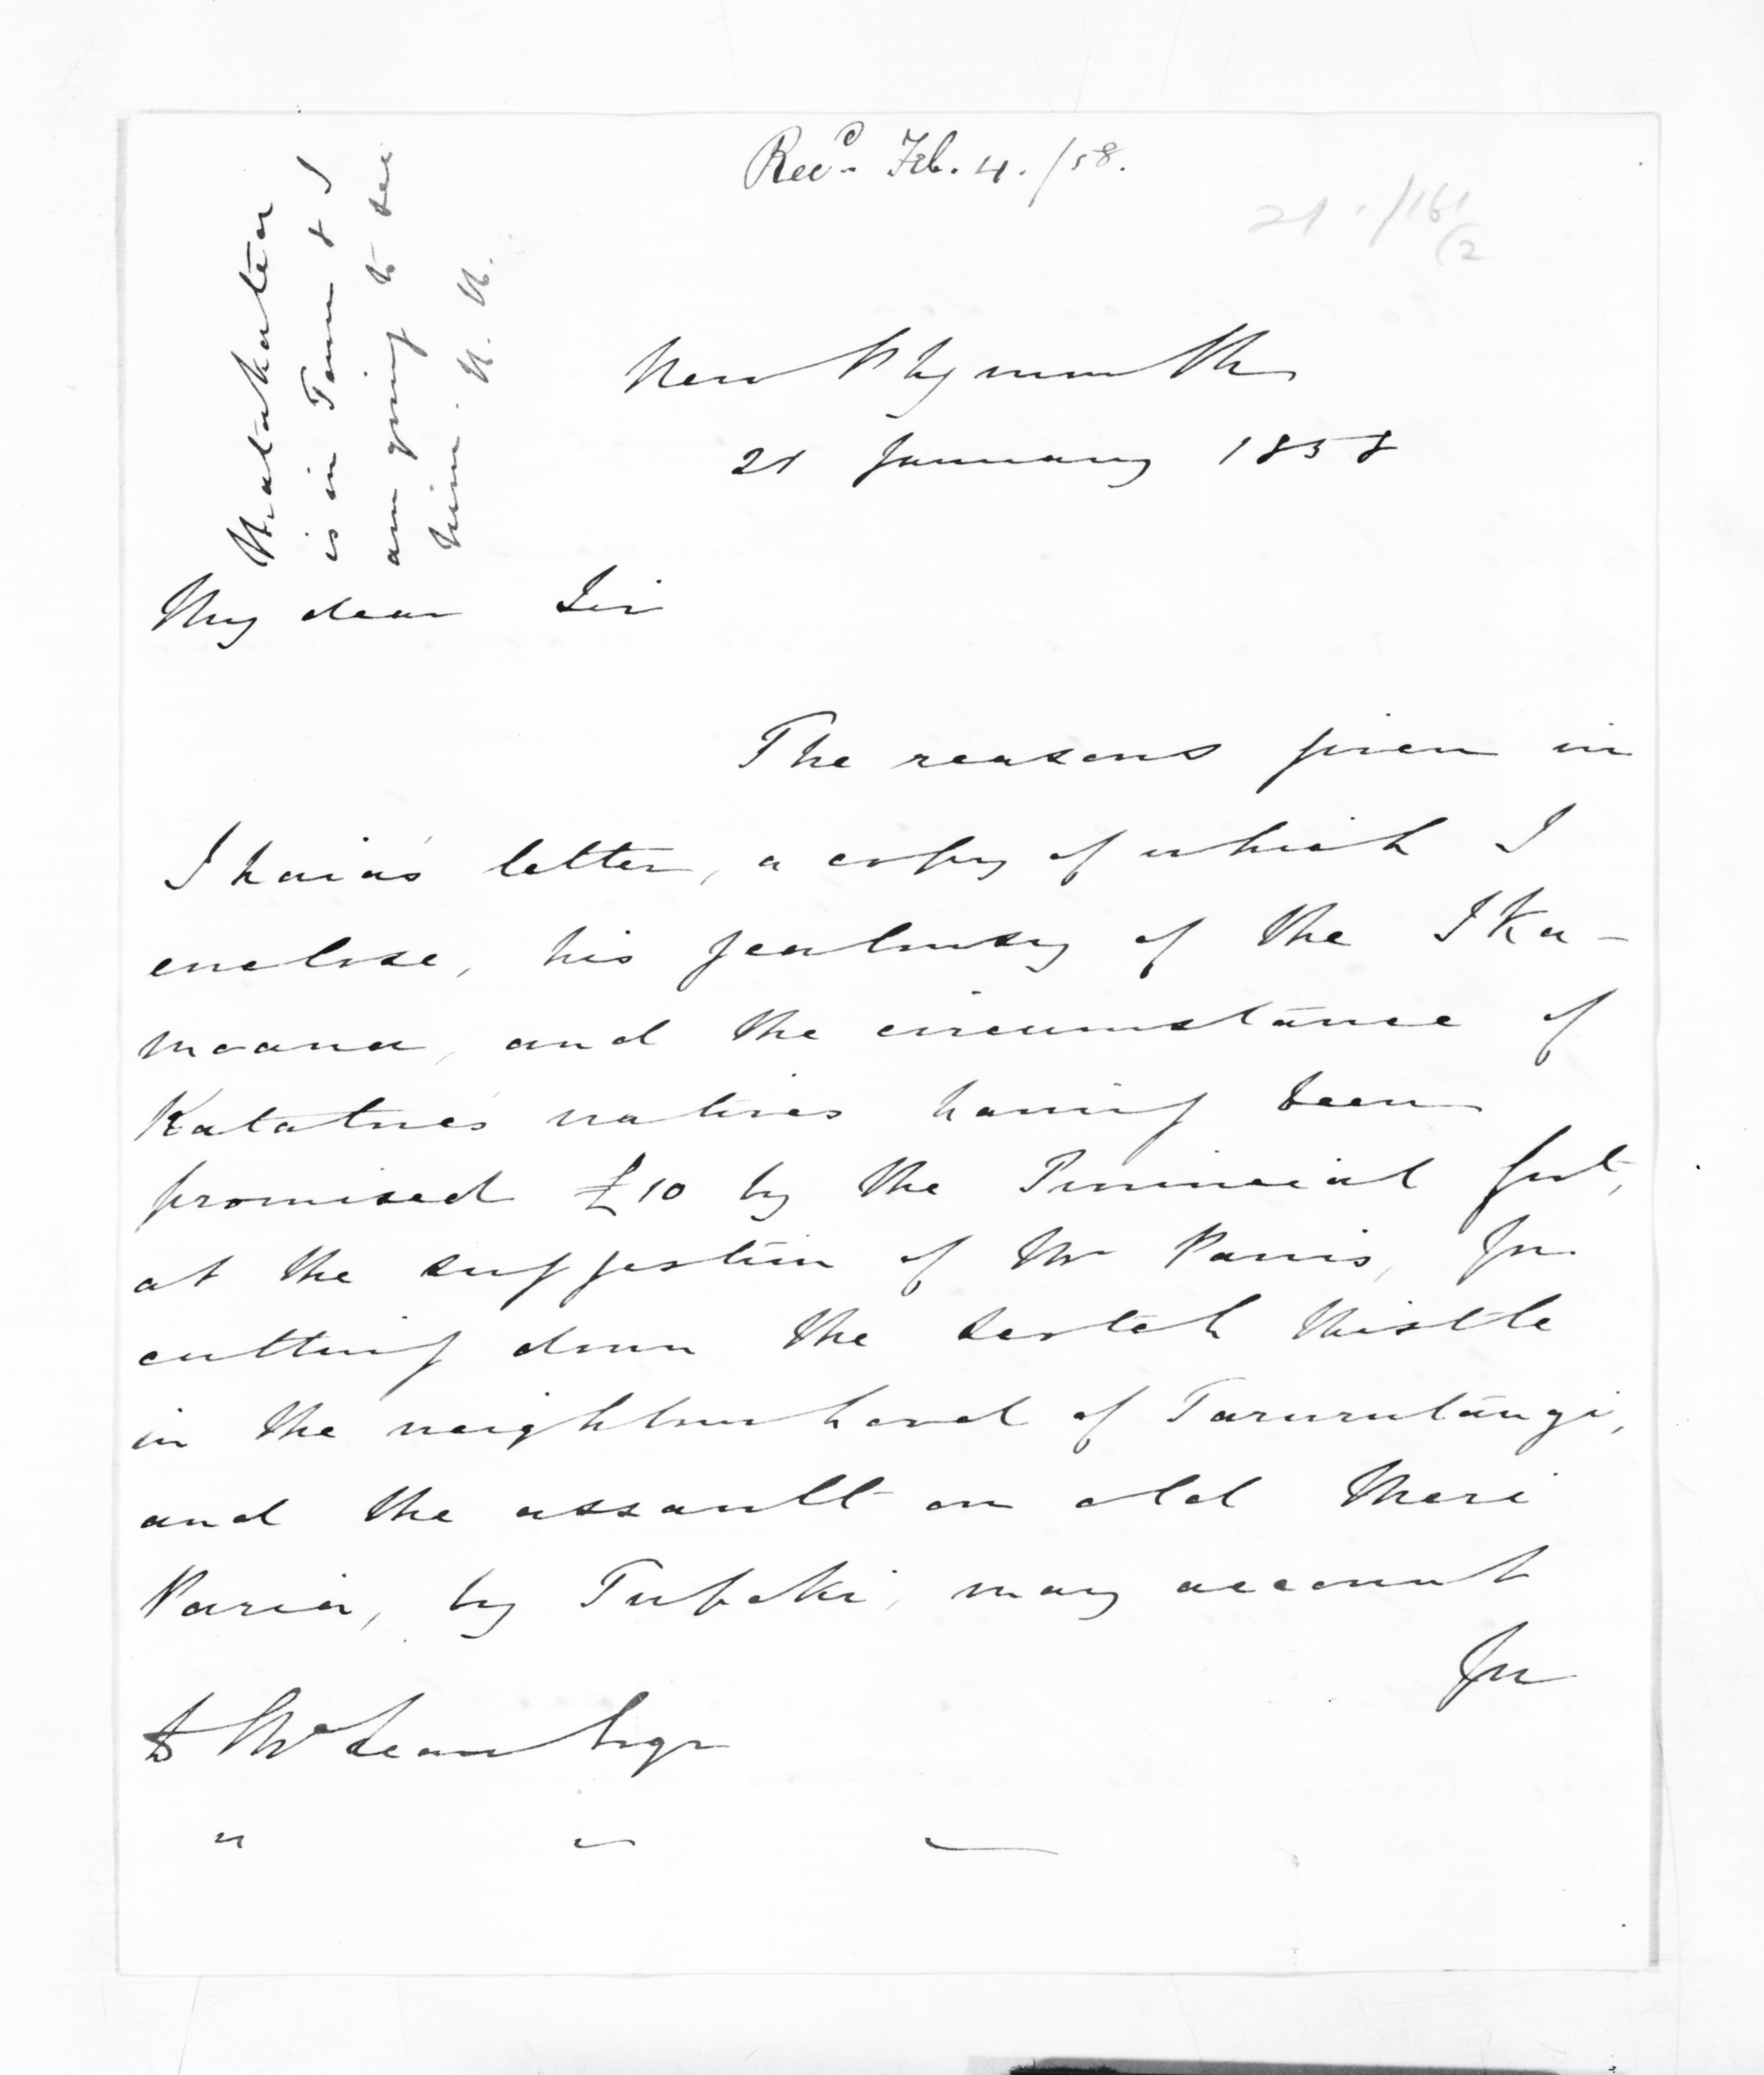 Recd. Feb. 4. /58.
21 . /161
(2
Watakatea
is in Town & I
am going to see
him. H. H.
New Plymouth
21 January 1858
My dear Sir
The reasons given in
Ihaia's letter, a copy of which I
enclose, his jealousy of the Ika-
moana, and the circumstance of
Katatore's natives having been
promised £10 by the Provincial Govt,
at the suggestion of Mr Parris, for
cutting down the Scotch thistle
in the neighbourhood of Tarurutangi,
and the assault on old Mere
Paria, by Tupoki, may account
for
D McLean Esqr
" " —